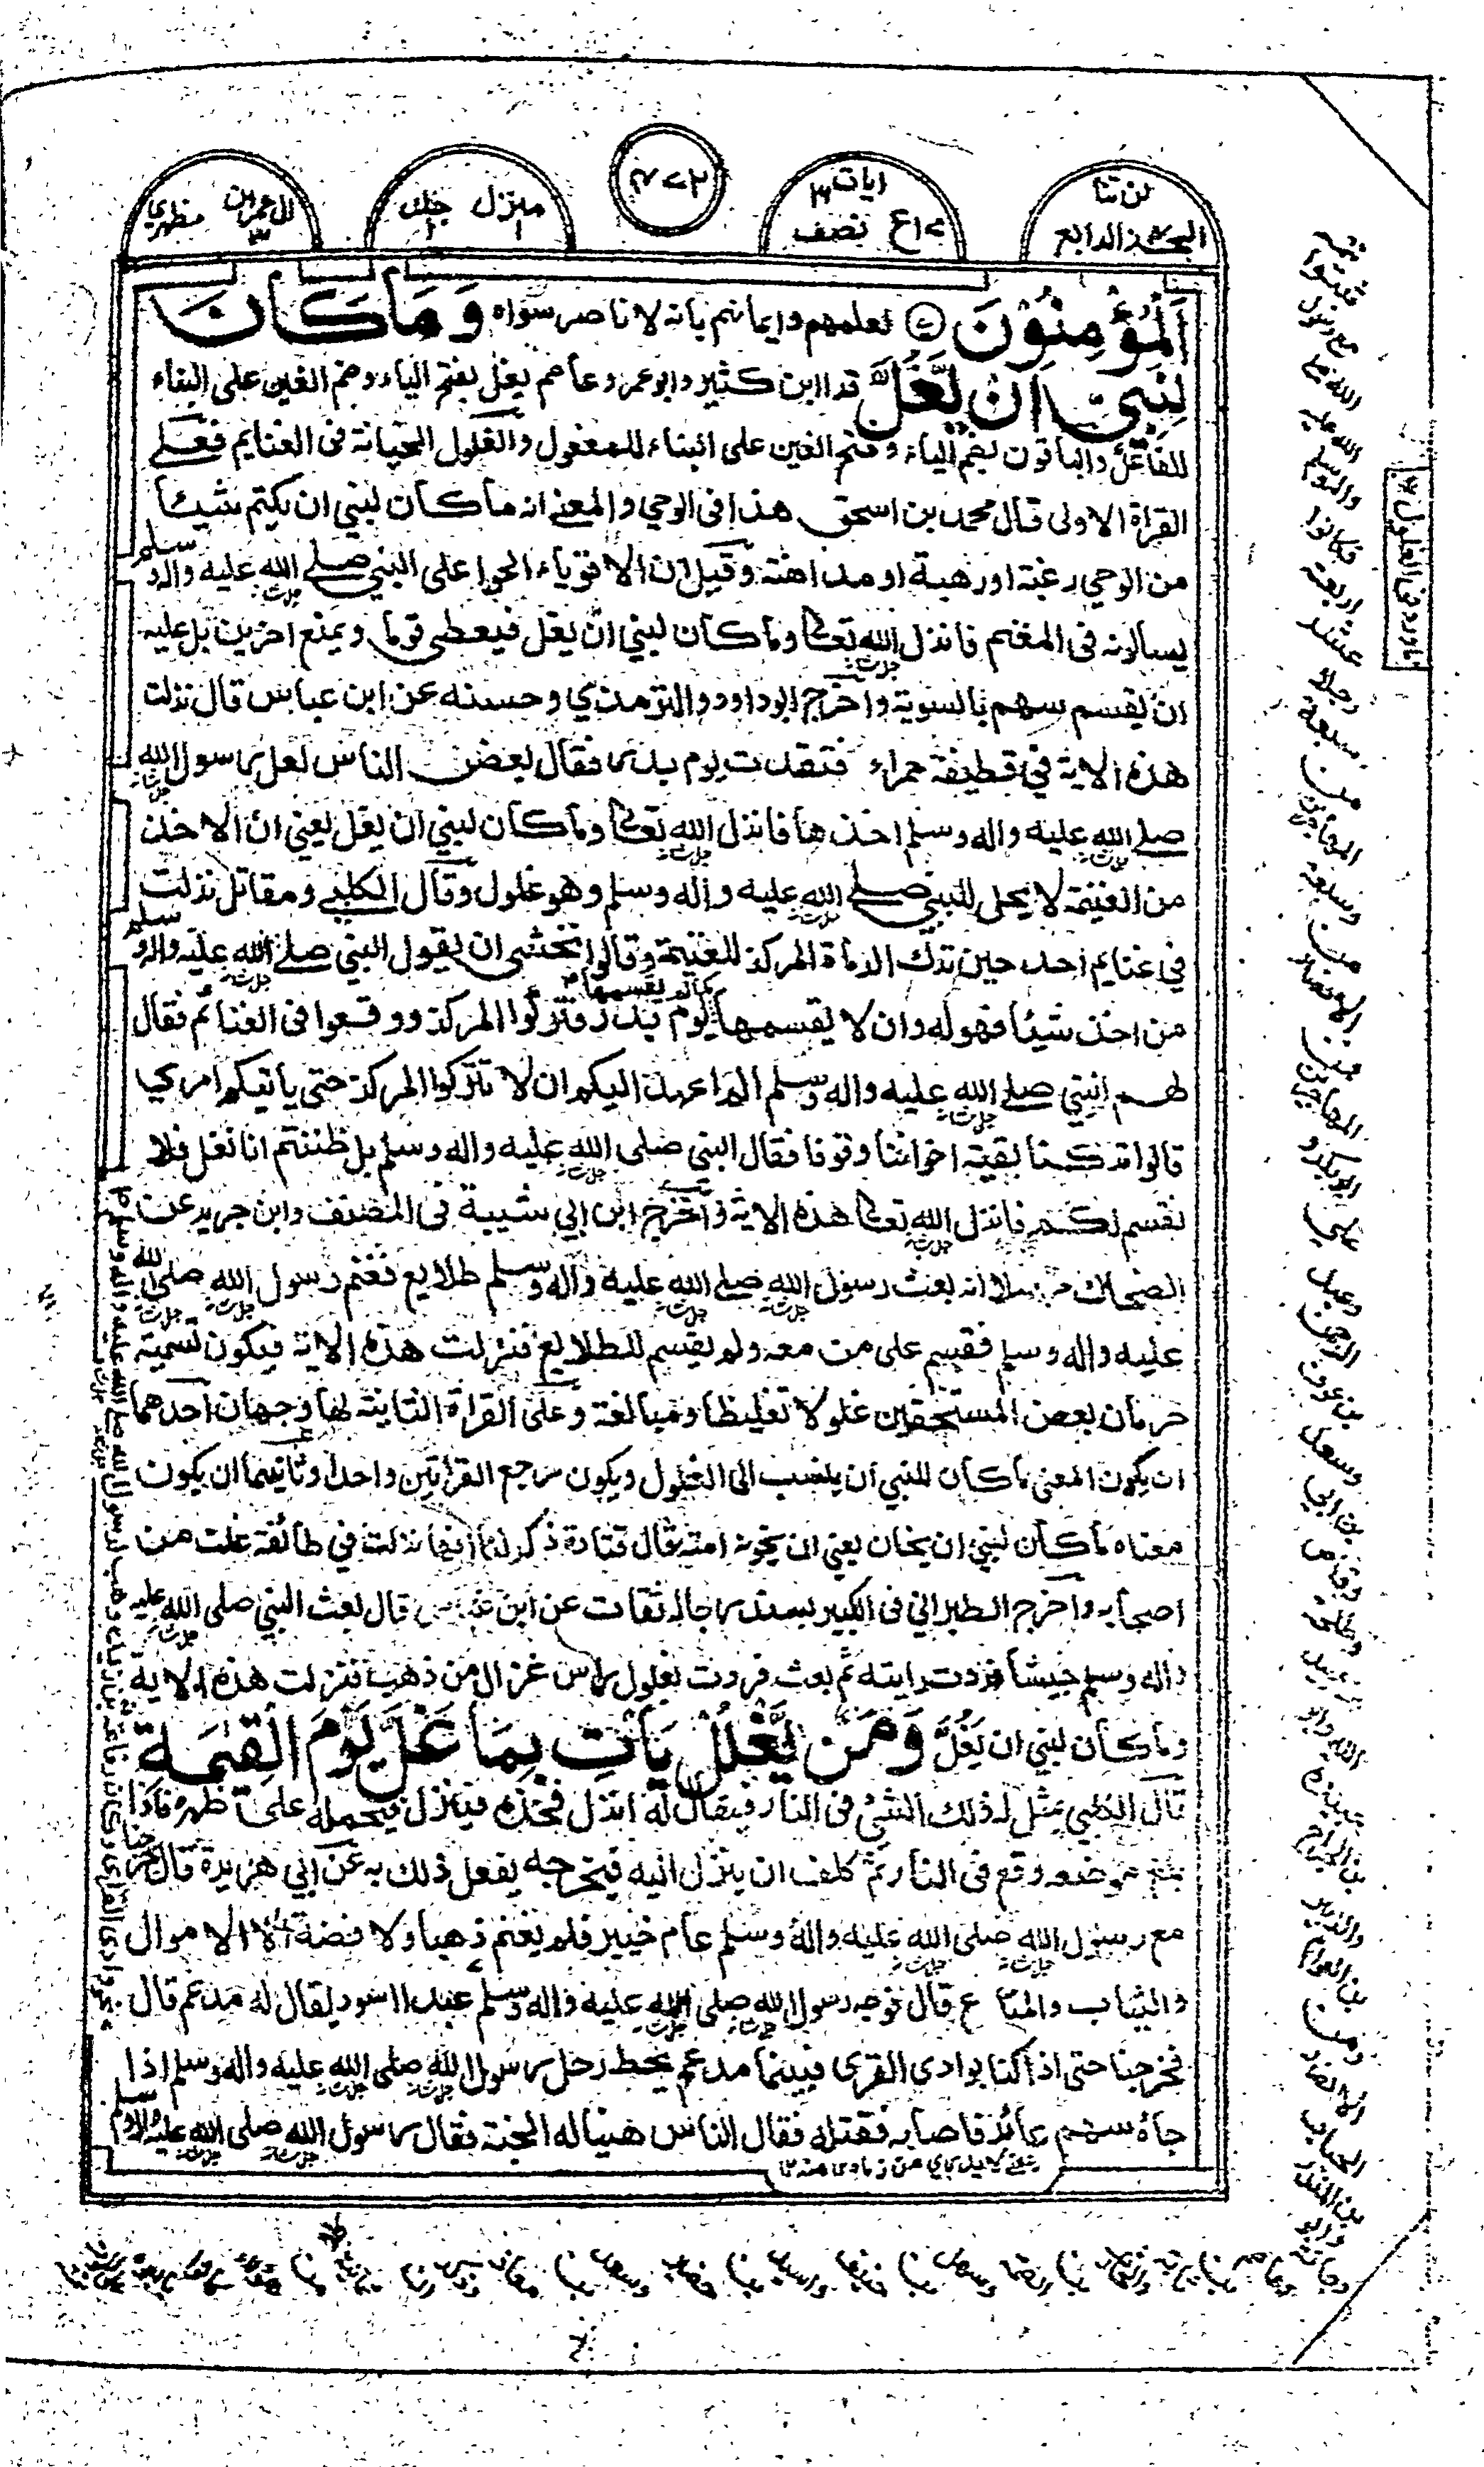 لن تنا
الجزء الرابع
ايات
نصف
منزل
ال عمرن مظهري
٣
الْمُؤْمِنُوْنَ لعلمهم وايمانهم بانه لا ناصر سواه وَمَا كَانَ
لِنَبِىٍّ اَنْ يَّغُلَّ قرا ابن كثير وابو عمرو وعاصم يغل بفتح الياء وضم الغين على البناء
للفاعل والباقون بضم الياء وفتح الغين على البناء للمفعول والغلول الخيانة فى الغنايم فعلے
القراة الاولى قال محمد بن اسحق هذا فى الوحي والمعنے انه ما كان لنبي ان يكتم شيئا
من الوحي رغبة او رهبة او مداهنة وقيل ان الاقوياء الحوا على النبي صلے الله عليه واله وسلم
يسالونه فى المغنم فانزل الله تعالے وما كان لنبي ان يغل فيعطى قوما ويمنع اخرين بل عليه
ان يقسم بينهم بالسوية واخرج ابوداود والترمذي وحسنه عن ابن عباس قال نزلت
هذه الاية فى قطيفة حمراء فتقدت يوم بدر فقال بعض الناس لعل رسول الله
صلے الله عليه واله وسلم اخذها فانزل الله تعالے وما كان لنبي ان يغل يعني ان الاخذ
من الغنيمة لا يحل للنبي صلے الله عليه واله وسلم وهو غلول وقال الكلبے ومقاتل نزلت
في غنايم احد حين ترك الرماة المركز للغنيمة وقالوا نخشى ان يقول النبي صلے الله عليه واله وسلم
من اخذ شيئا فهو له وان لا يقسمها كما لم يقسمها يوم بدر فتركوا المركز ووقعوا فى الغنائم فقال
لهم النبي صلے الله عليه واله وسلم الم اعهد اليكم ان لا تتركوا المركز حتى ياتيكم امري
قالوا قد تركنا بقية اخواننا وقوفا فقال النبي صلى الله عليه واله وسلم بل ظننتم انا نغل فلا
نقسم لكم فانزل الله تعالے هذه الاية واخرج ابن ابي شيبة فى المصنف وابن جرير عن
الضحاك مرسلا انه بعث رسول الله صلے الله عليه واله وسلم طلايع فغنم رسول الله صلى الله
عليه واله وسلم فقسم على من معه ولم يقسم للطلايع فنزلت هذه الاية فيكون تسمية
حرمان بعض المستحقين غلولا تغليظا ومبالغة وعلى القراة الثانية لها وجهان احدهما
ان يكون المعنى ما كان للنبي ان ينسب الى الغلول ويكون مرجع القراتين واحدا وثانيهما ان يكون
معناه ما كان لنبي ان يخان يعني ان يخونه امته قال قتادة ذكر لنا انها نزلت في طائفة غلت من
اصحابه واخرج الطبراني فى الكبير بسند رجاله ثقات عن ابن عباس قال بعث النبي صلى الله عليه
واله وسلم جيشا فردت رايته ثم بعث فردت بغلول راس غزال من ذهب فنزلت هذه الاية
وما كان لنبي ان يَغُلَّ وَمَنْ يَّغْلُلْ يَاْتِ بِمَا غَلَّ يَوْمَ الْقِيٰمَةِ
قال الكلبي يمثل له ذلك الشئ فى النار فيقال له انزل فخذه فينزل فيحمله على ظهره فاذا
بلغ موضعه وقع فى النار ثم كلف ان ينزل اليه فيخرجه يفعل ذلك به عن ابي هريرة قال خرجنا
مع رسول الله صلى الله عليه واله وسلم عام خيبر فلم يغنم ذهبا ولا فضة الا الاموال
والثياب والمتاع قال فوجه رسول الله صلى الله عليه واله وسلم عبد اسود يقال له مدعم قال
فخرجنا حتى اذا كنا بوادى القرى فبينما مدعم يحط رحل رسول الله صلى الله عليه واله وسلم اذا
جاءه سهم عائر فاصابه فقتله فقال الناس هنيئا له الجنة فقال رسول الله صلى الله عليه واله وسلم
ما ورد فى الغلول
الله عليه
واله وسلم
فكانوا
اربعة
عشر
رجلا
سبعة
من
المهاجرين
وسبعة
من
الانصار
فمن
المهاجرين
ابو بكر و
علي
وعبد
الرحمن
بن عوف
وسعد
بن ابي
وقاص
وطلحة
بن عبيد
الله وابو
عبيدة
بن الجراح
والزبير
بن العوام
ومن
الانصار
الحباب
بن المنذر
وابو
دجانة